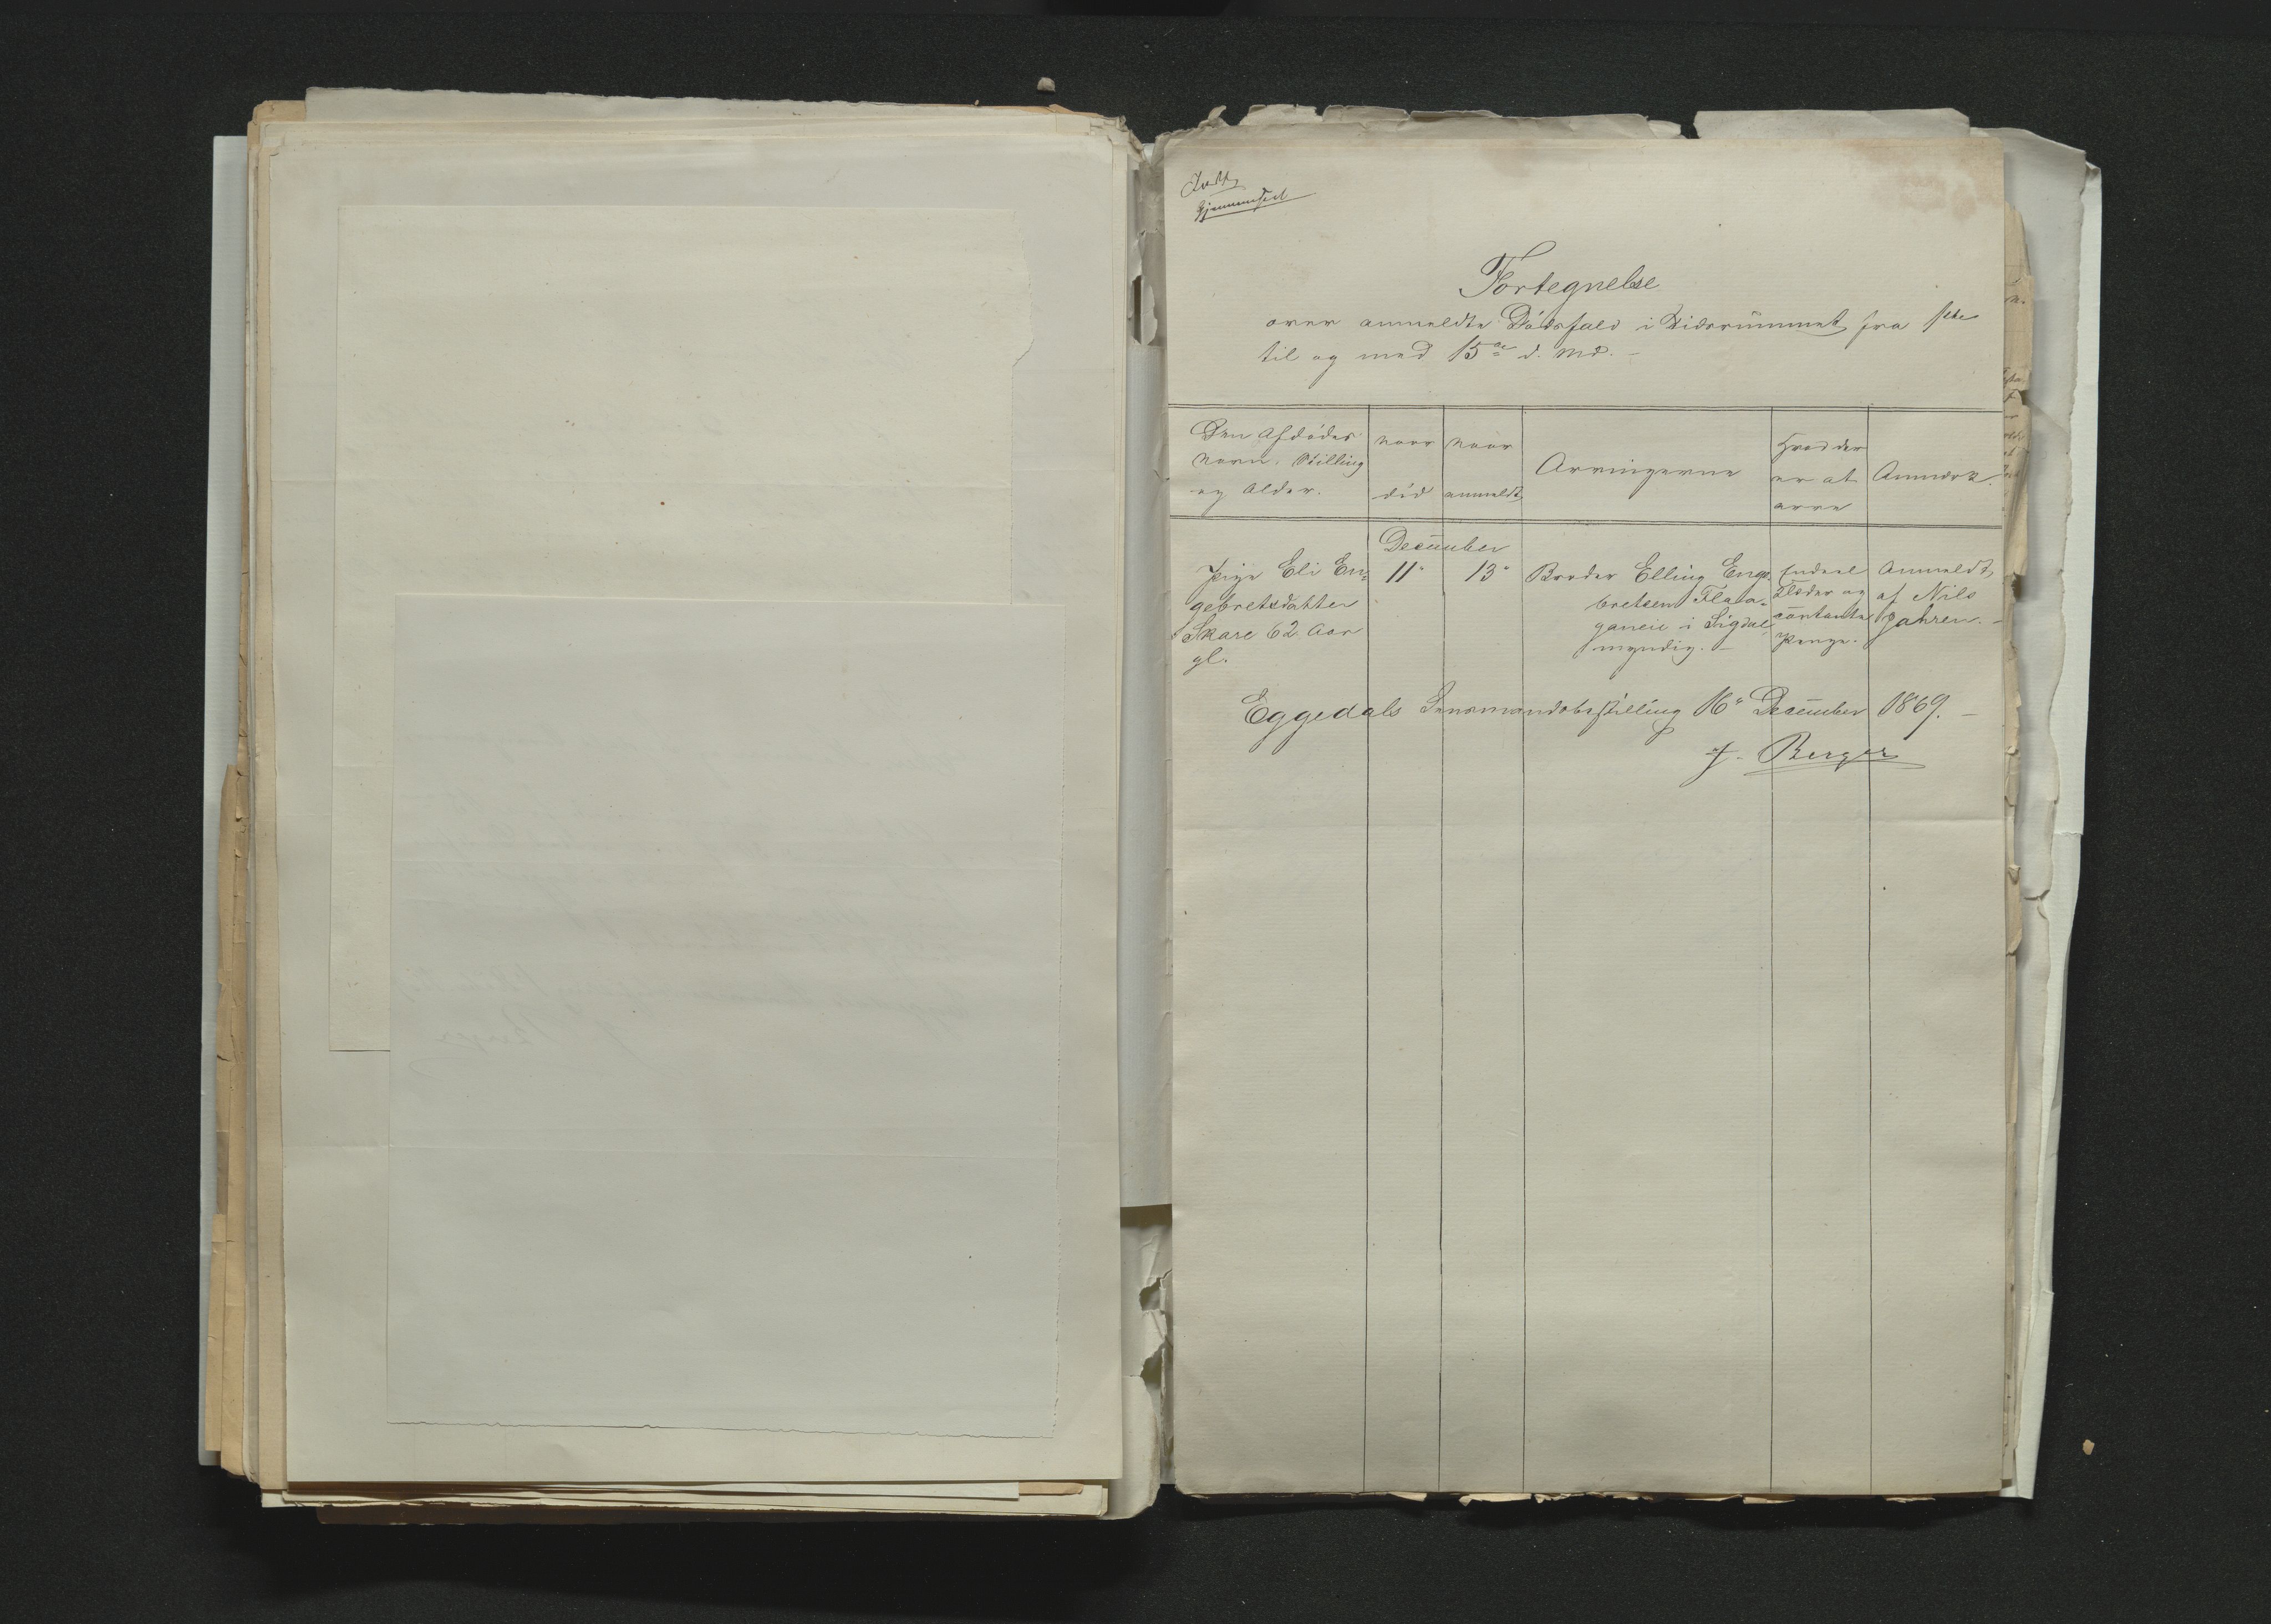 Indf.
Gjennemseet
Fortegnelse
over anmeldte Dødsfald i Tidsrummet fra 1ste
til og med 15de d. Md. –
Den Afdødes
Navn, Stilling
og Alder.
naar
død
naar
anmeldt
Arvingerne
Hvad der
er at
arve
Anmærk.
December
Pige Eli En-
gebretsdatter
Skare 62 Aar
gl.
11
13
Broder Elling Enge-
bretsen Flaa-
ganeie i Sigdal
myndig. –
Endeel
Klæder og
contante
Penge.
Anmeldt
af Nils
Jahren. –
Eggedals Lensmandsbestilling 16 December 1869. –
J. Berger